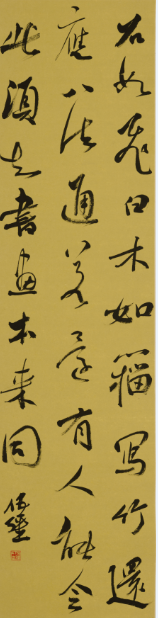 石如飛白木如籀寫竹還
應八法通若還有人能會
此須知書畫本來同